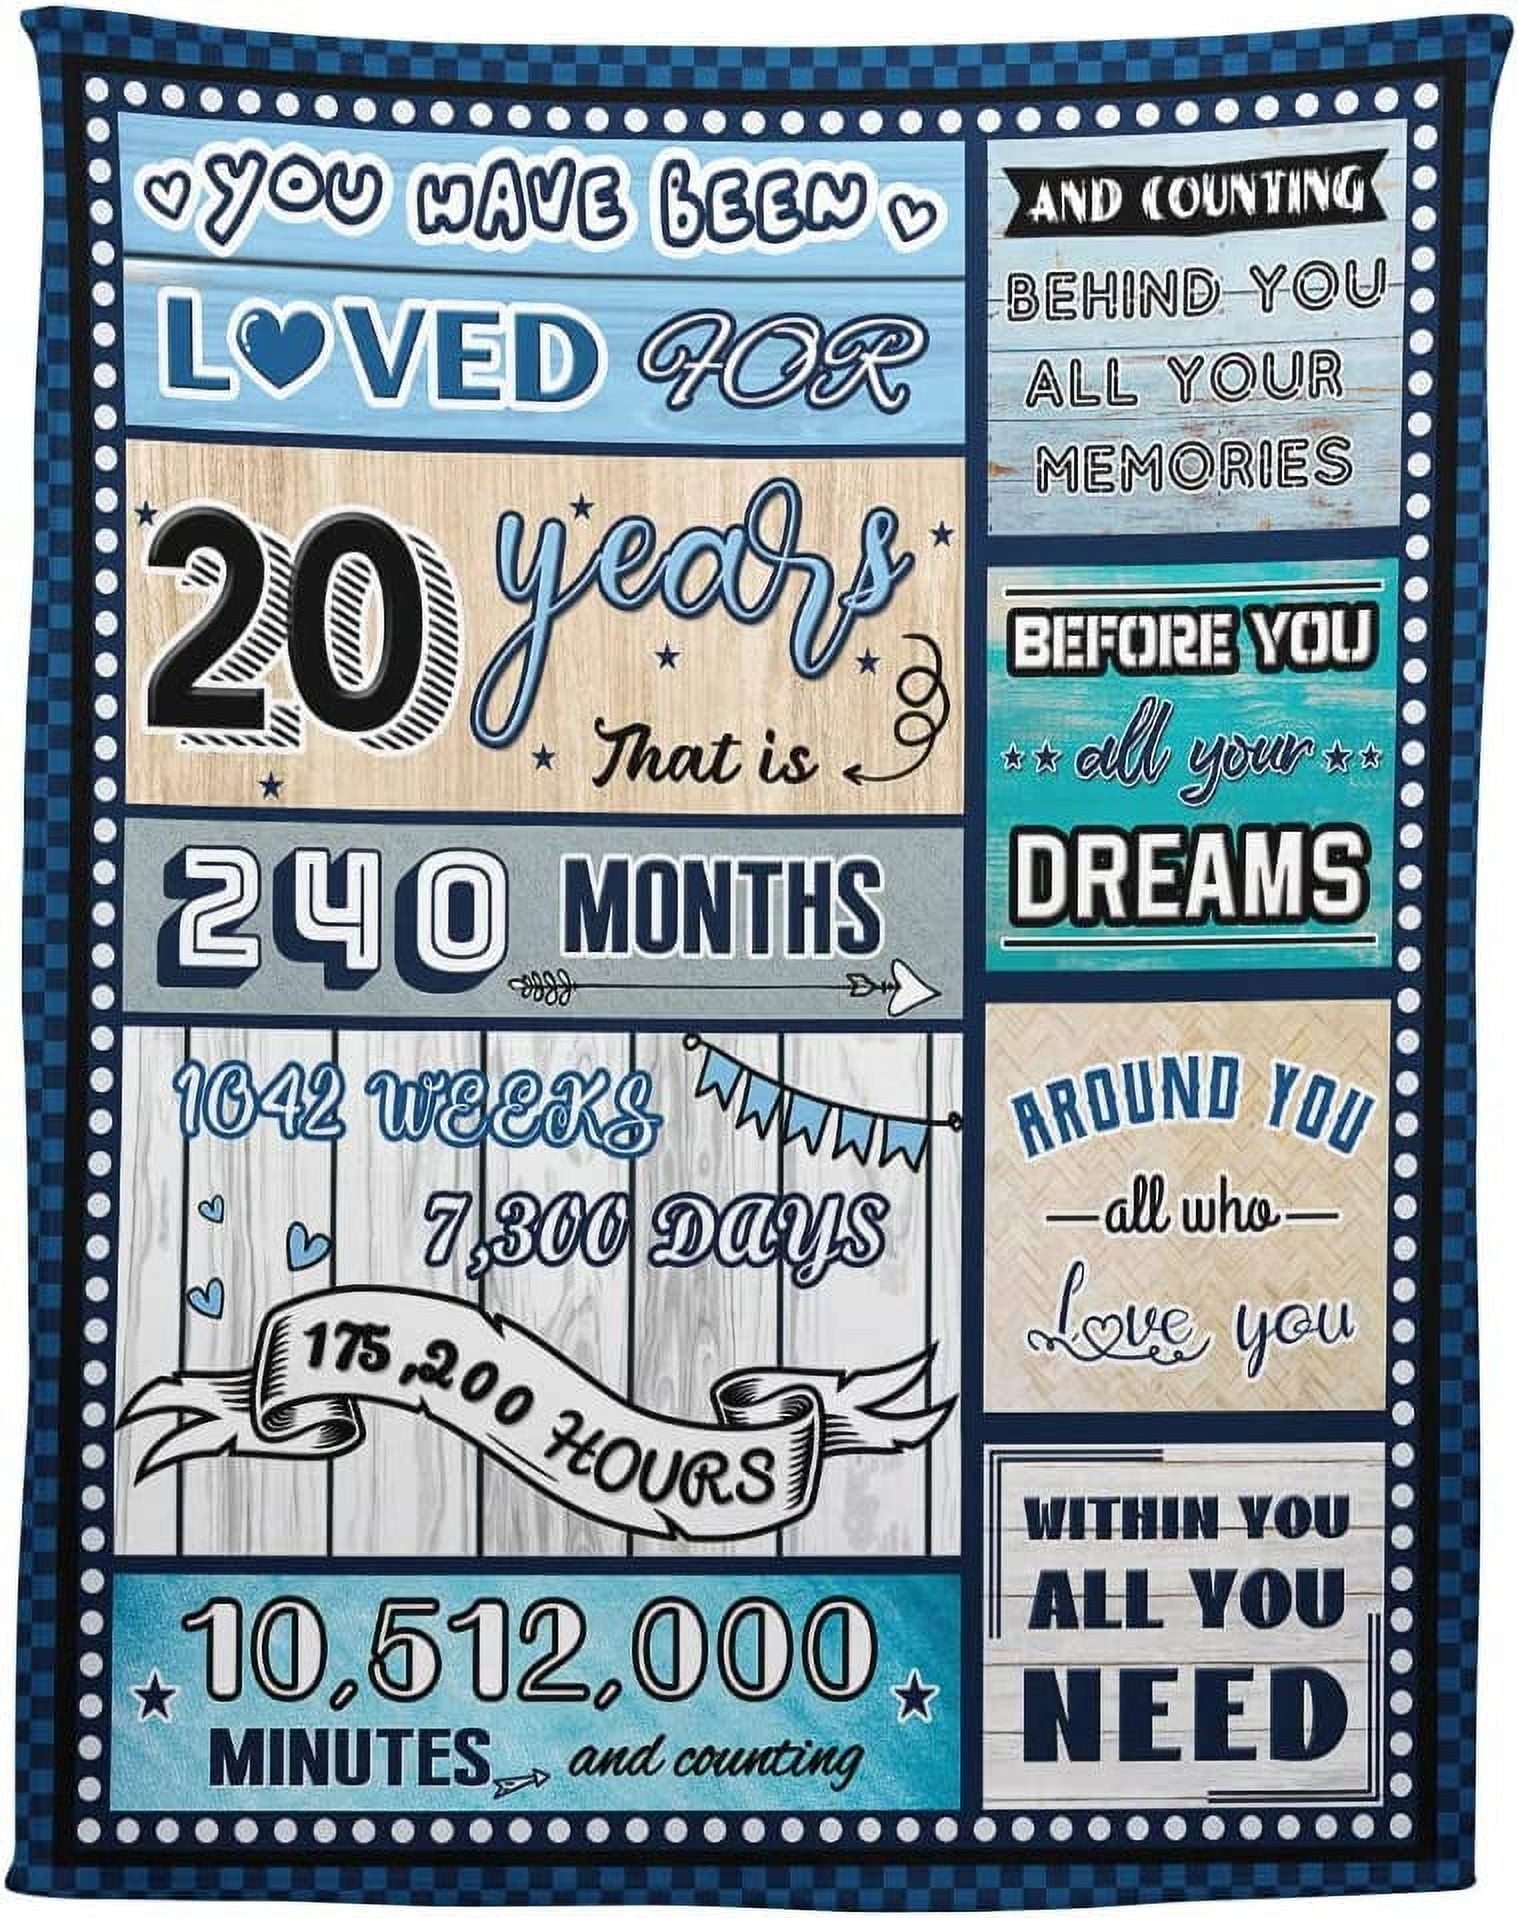 YOU HAVE BEEN
LOVED FOR
20 years
That is
240 MONTHS
1042 WEEKS
7,300 DAYS
175,200 HOURS
10,512,000
MINUTES and counting
AND COUNTING
BEHIND YOU
ALL YOUR
MEMORIES
BEFORE YOU
all your
DREAMS
AROUND YOU
all who
Love you
WITHIN YOU
ALL YOU
NEED